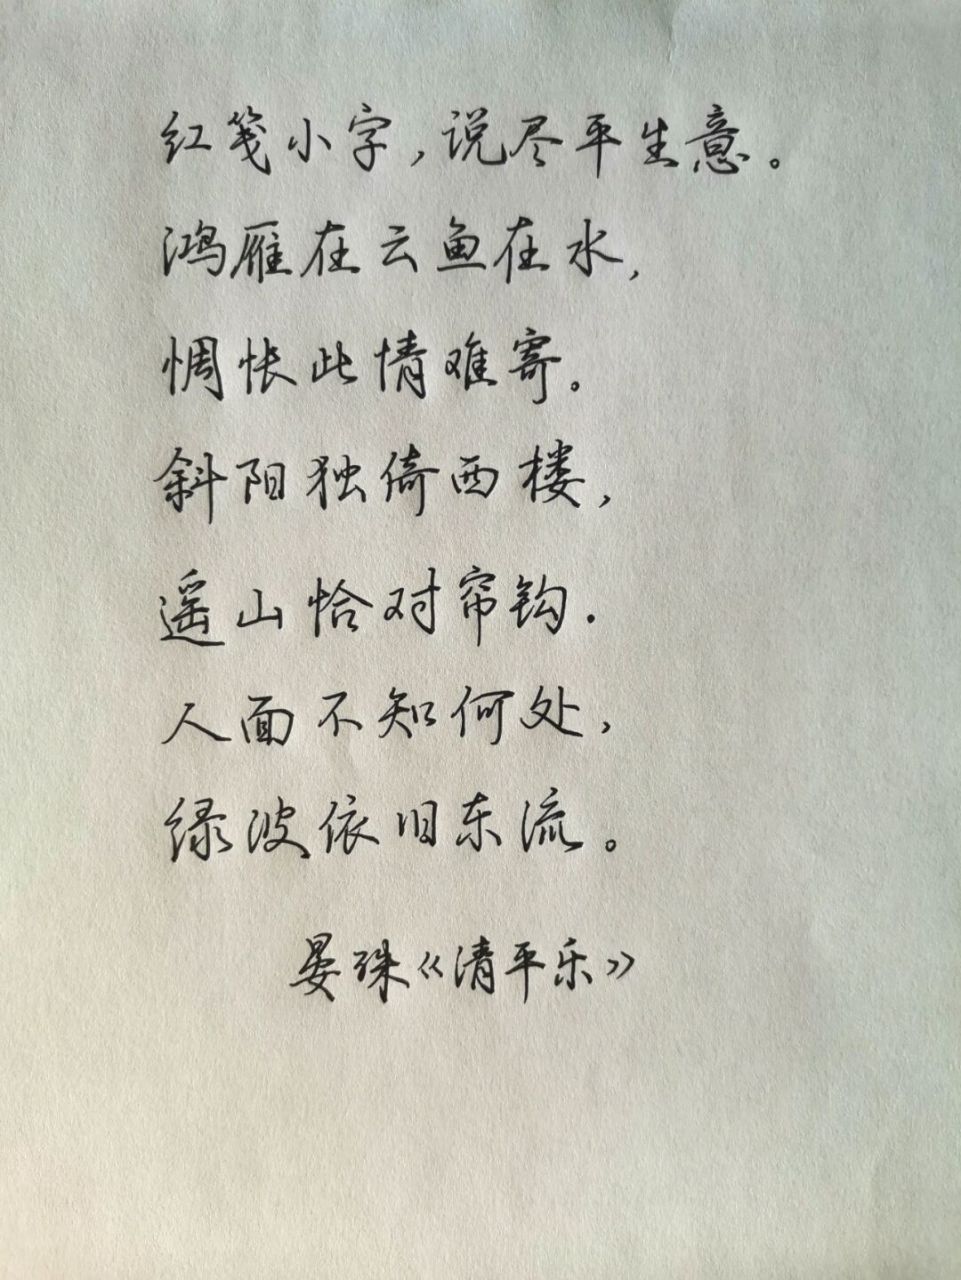 红笺小字，说尽平生意。
鸿雁在云鱼在水，
惆怅此情难寄。
斜阳独倚西楼，
遥山恰对帘钩.
人面不知何处，
绿波依旧东流。
晏殊《清平乐》